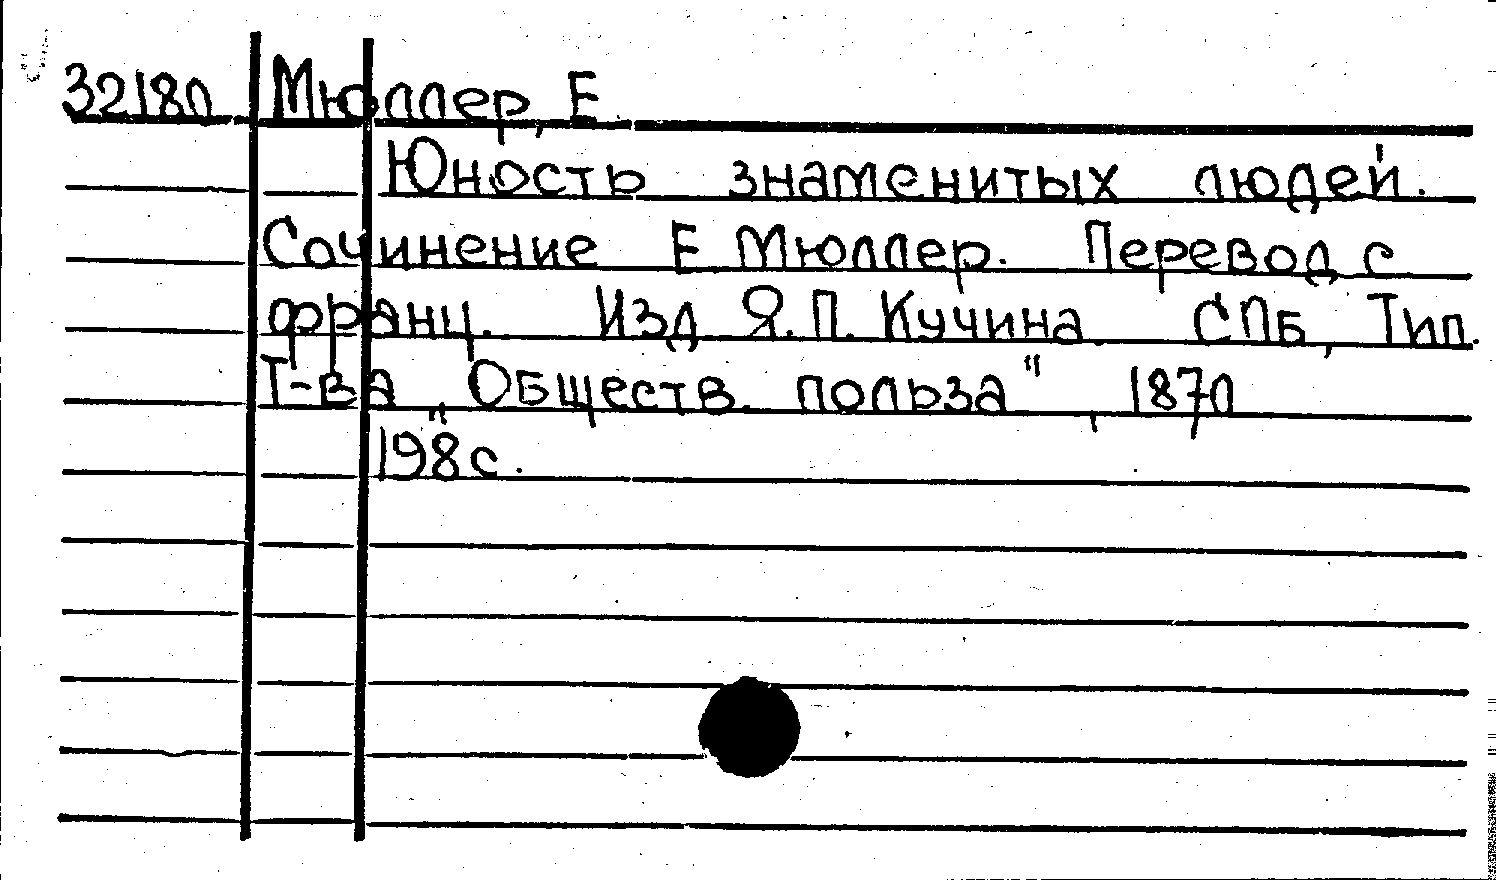 32180 Мюллер, Е
Юность знаменитых людей.
Сочинение Е Мюллер. Перевод с
франц. Изд Я.П. Кучина. СПб, Тип.
Т-ва „Обществ. польза", 1870
198 с.